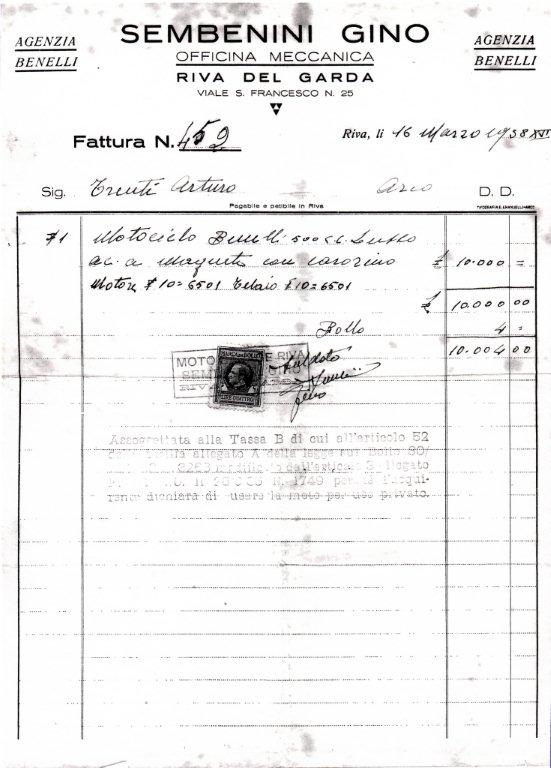 AGENZIA
BENELLI
SEMBENINI GINO
OFFICINA MECCANICA
RIVA DEL GARDA
VIALE S. FRANCESCO N. 25
AGENZIA
BENELLI
Fattura N. 452
Riva, li 16 Marzo 1938 XVI
Sig. Trenti Arturo Arco D. D.
Pagabile e petibile in Riva
Motociclo Benelli 500 cc. Lusso
ac. a Magnete con
£ 10.000 =
Motore # 10=6501 Telaio # 10=6501
£ 10.000 00
Bollo 4 =
10.004 00
MOTO RIVA
Saldato
Assoggettata alla Tassa B di cui all'articolo 52
allegato A della legge sul Bollo 30/
3268 modificato dall'articolo 3 allegato
N. 1749 per
dichiara di usare la moto per uso privato.